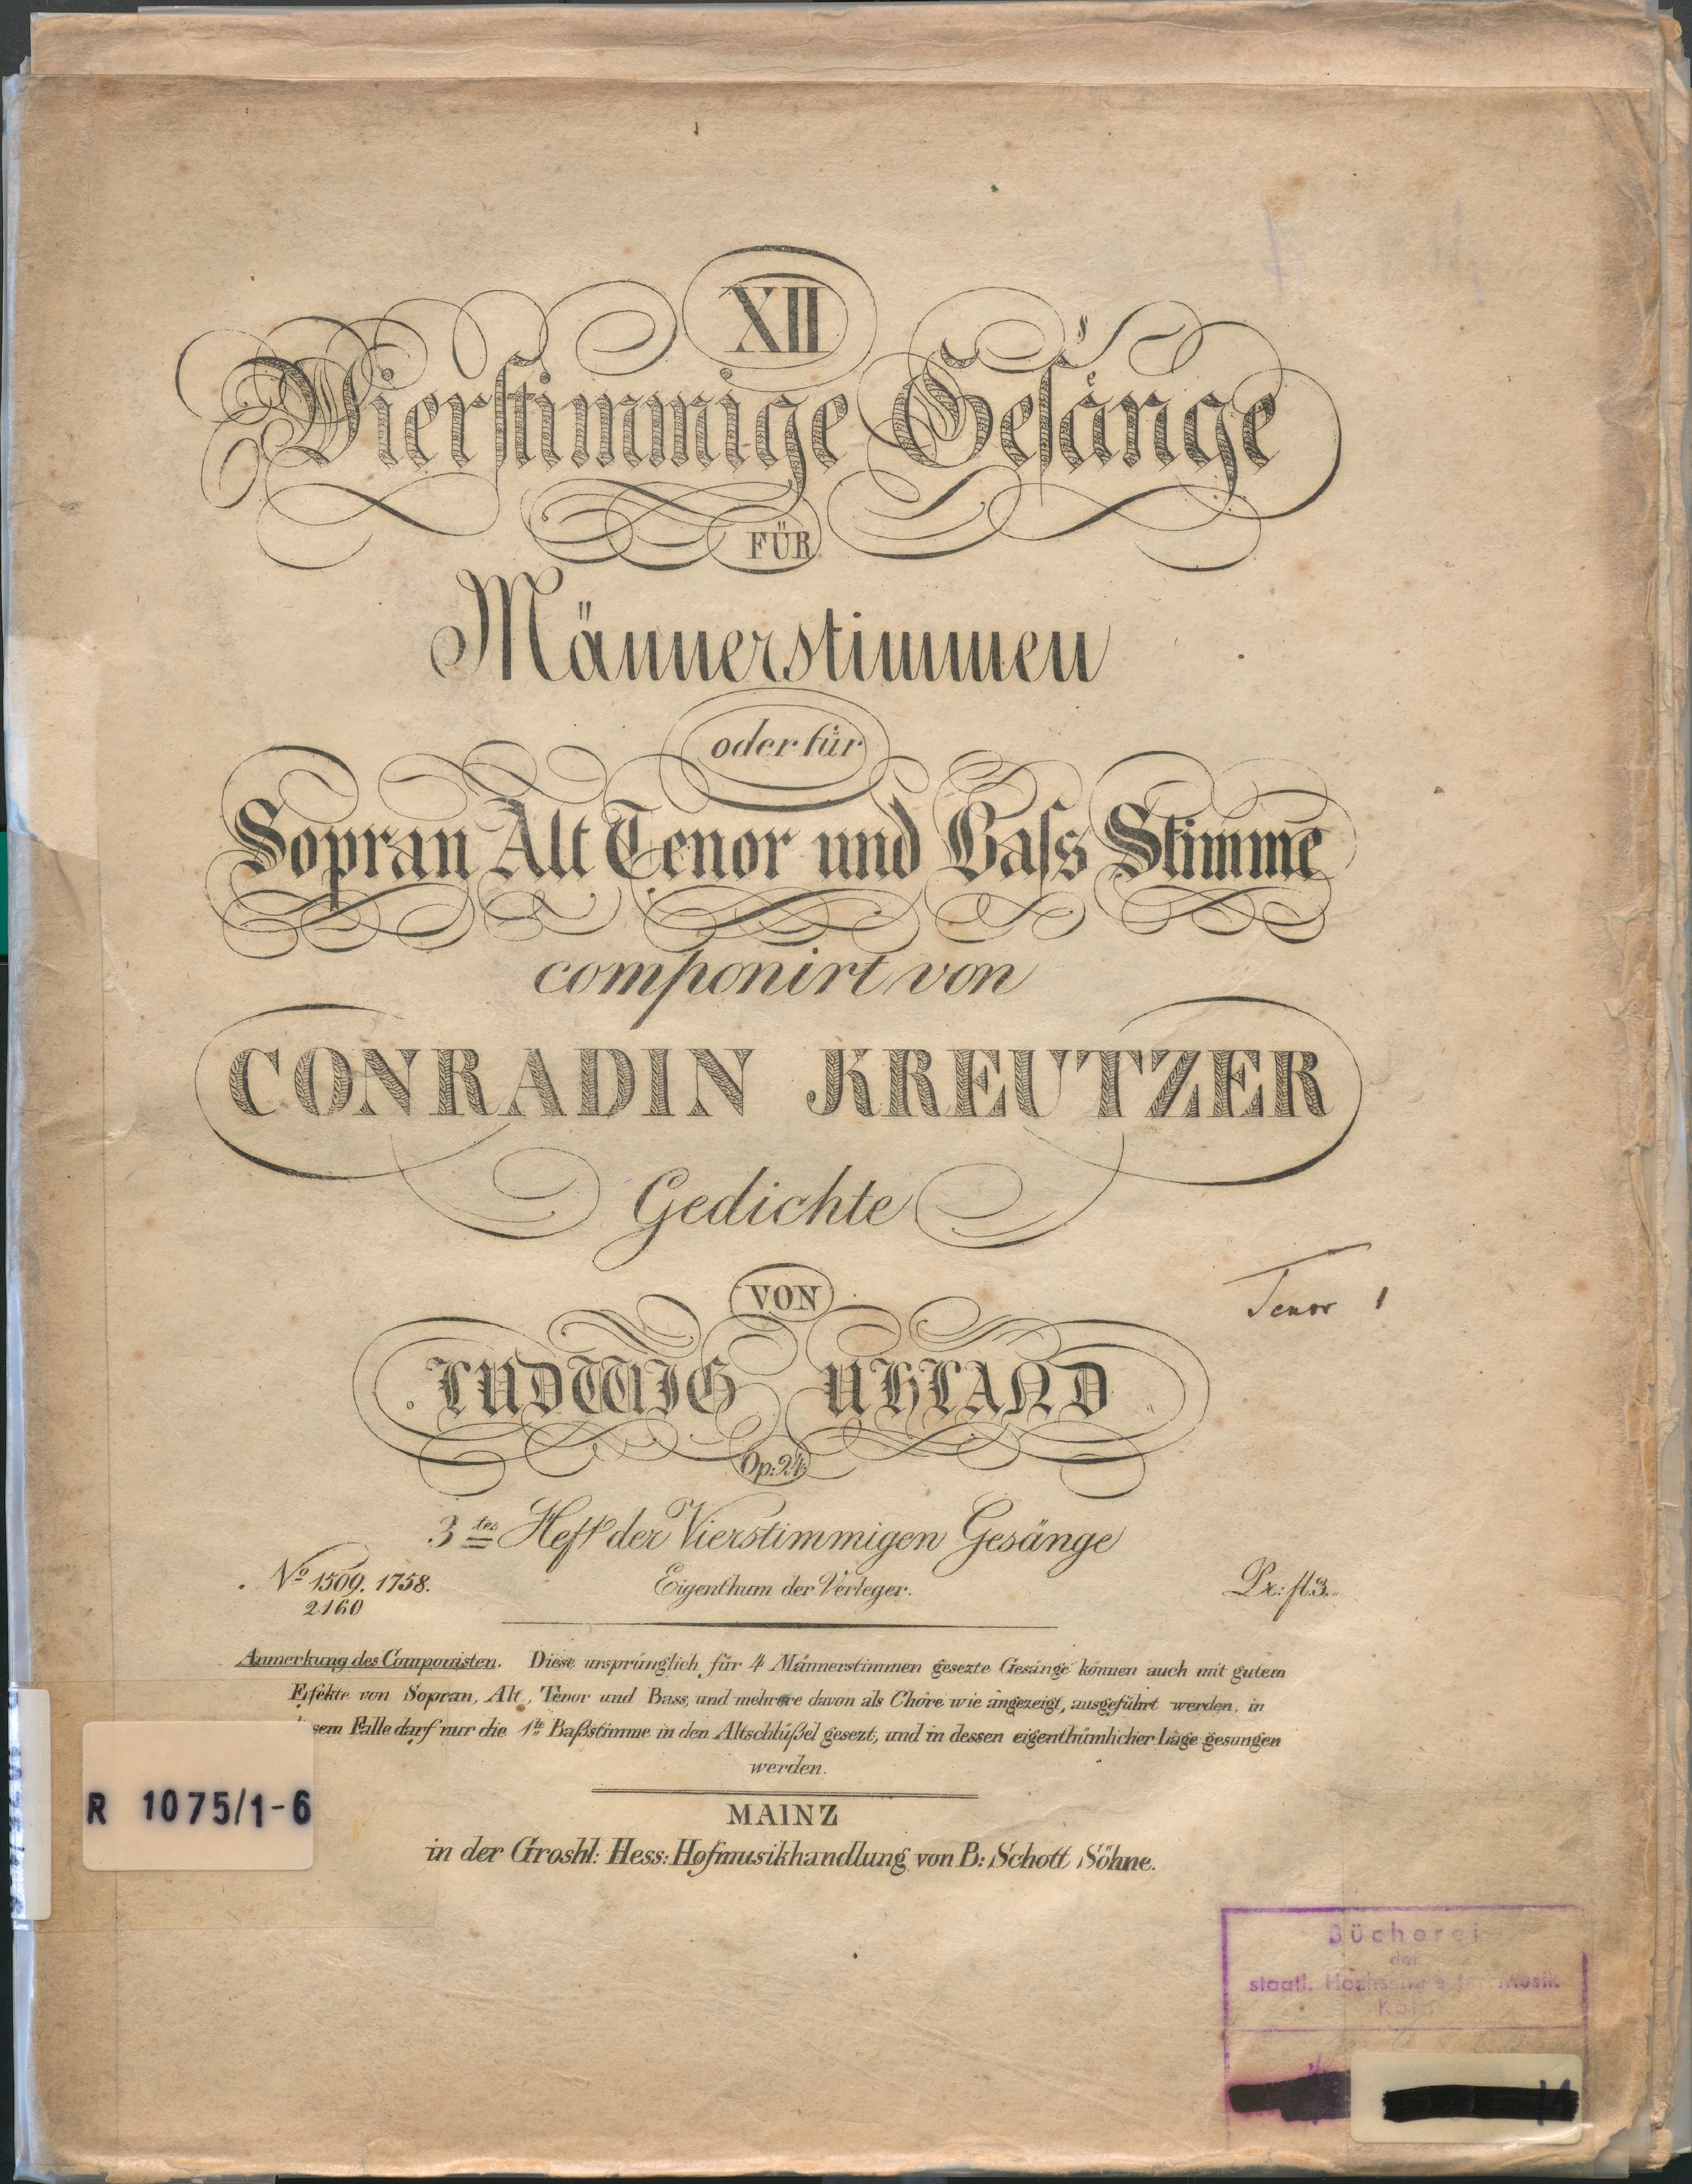 XII
Vierstimmige Gesänge
FÜR
Männerstimmen
oder für
Sopran Alt Tenor und Baſs Stimme
componirt von
CONRADIN KREUTZER
Gedichte
VON
LUDWIG UHLAND
Tenor 1
Op: 24.
3tes Heft der Vierstimmigen Gesänge
No 1509. 1758.
2160
Eigenthum der Verleger.
Pr: fl.3.
Anmerkung des Componisten. Diese ursprünglich für 4 Männerstimmen gesezte Gesänge können auch mit gutem
Effekte von Sopran, Alt, Tenor und Bass, und mehrere davon als Chöre wie angezeigt, ausgeführt werden, in
sem Falle darf nur die 1te Baßstimme in den Altschlüßel gesezt, und in dessen eigenthümlicher Lage gesungen
werden.
MAINZ
in der Groshl: Hess: Hofmusikhandlung von B: Schott Söhne.
R 1075/1-6
Bücherei
der
staatl. Hochschule für Musik
Köln